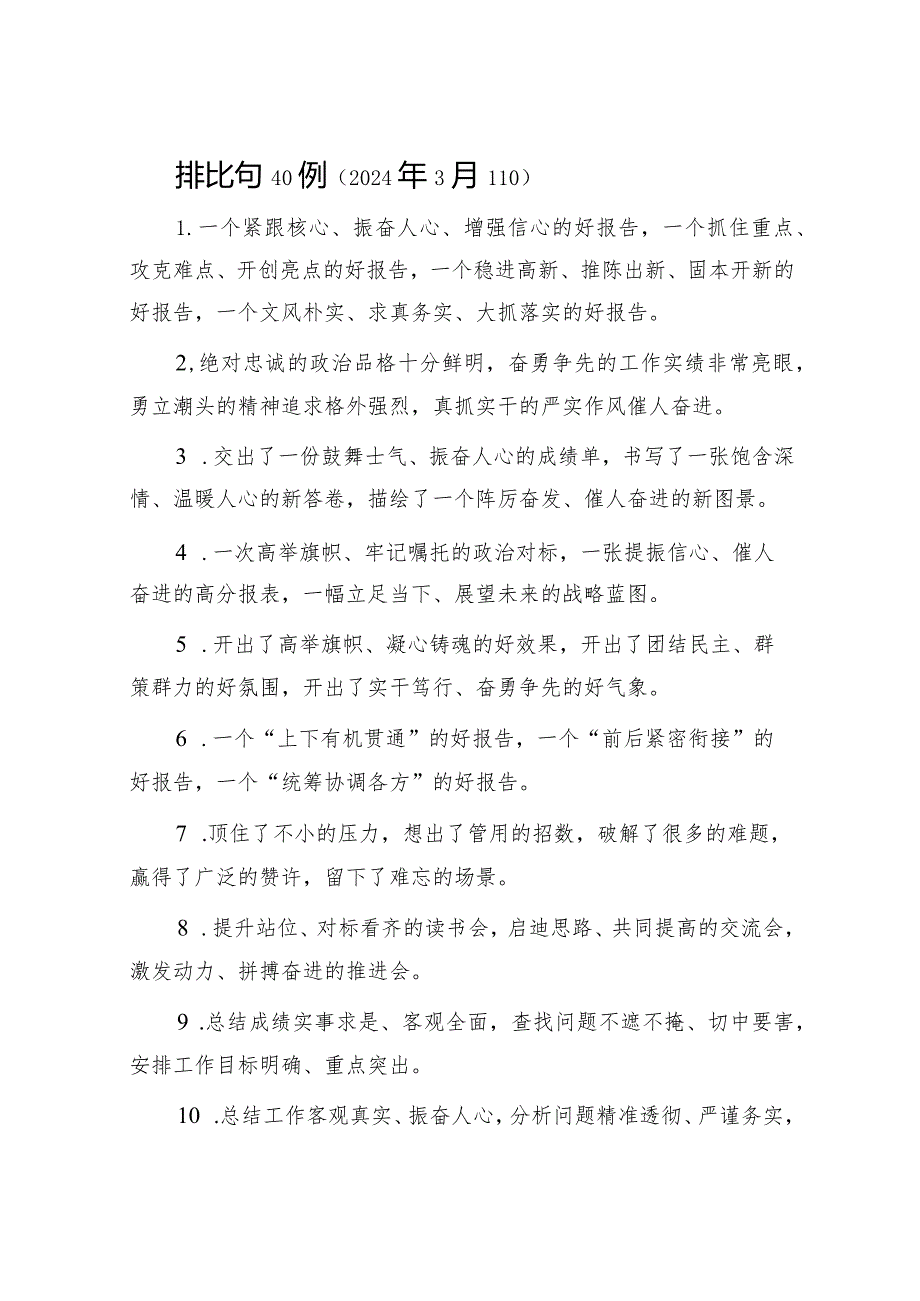 排比句 40 例（2024 年 3 月 110）
1. 一个紧跟核心、振奋人心、增强信心的好报告，一个抓住重点、
攻克难点、开创亮点的好报告，一个稳进高新、推陈出新、固本开新的
好报告，一个文风朴实、求真务实、大抓落实的好报告。
2,绝对忠诚的政治品格十分鲜明，奋勇争先的工作实绩非常亮眼，
勇立潮头的精神追求格外强烈，真抓实干的严实作风催人奋进。
3 .交出了一份鼓舞士气、振奋人心的成绩单，书写了一张饱含深
情、温暖人心的新答卷，描绘了一个阵厉奋发、催人奋进的新图景。
4 .一次高举旗帜、牢记嘱托的政治对标，一张提振信心、催人
奋进的高分报表，一幅立足当下、展望未来的战略蓝图。
5 .开出了高举旗帜、凝心铸魂的好效果，开出了团结民主、群
策群力的好氛围，开出了实干笃行、奋勇争先的好气象。
6 .一个“上下有机贯通”的好报告，一个“前后紧密衔接”的
好报告，一个“统筹协调各方”的好报告。
7 .顶住了不小的压力，想出了管用的招数，破解了很多的难题，
赢得了广泛的赞许，留下了难忘的场景。
8 .提升站位、对标看齐的读书会，启迪思路、共同提高的交流会，
激发动力、拼搏奋进的推进会。
9 .总结成绩实事求是、客观全面，查找问题不遮不掩、切中要害，
安排工作目标明确、重点突出。
10 .总结工作客观真实、振奋人心，分析问题精准透彻、严谨务实，